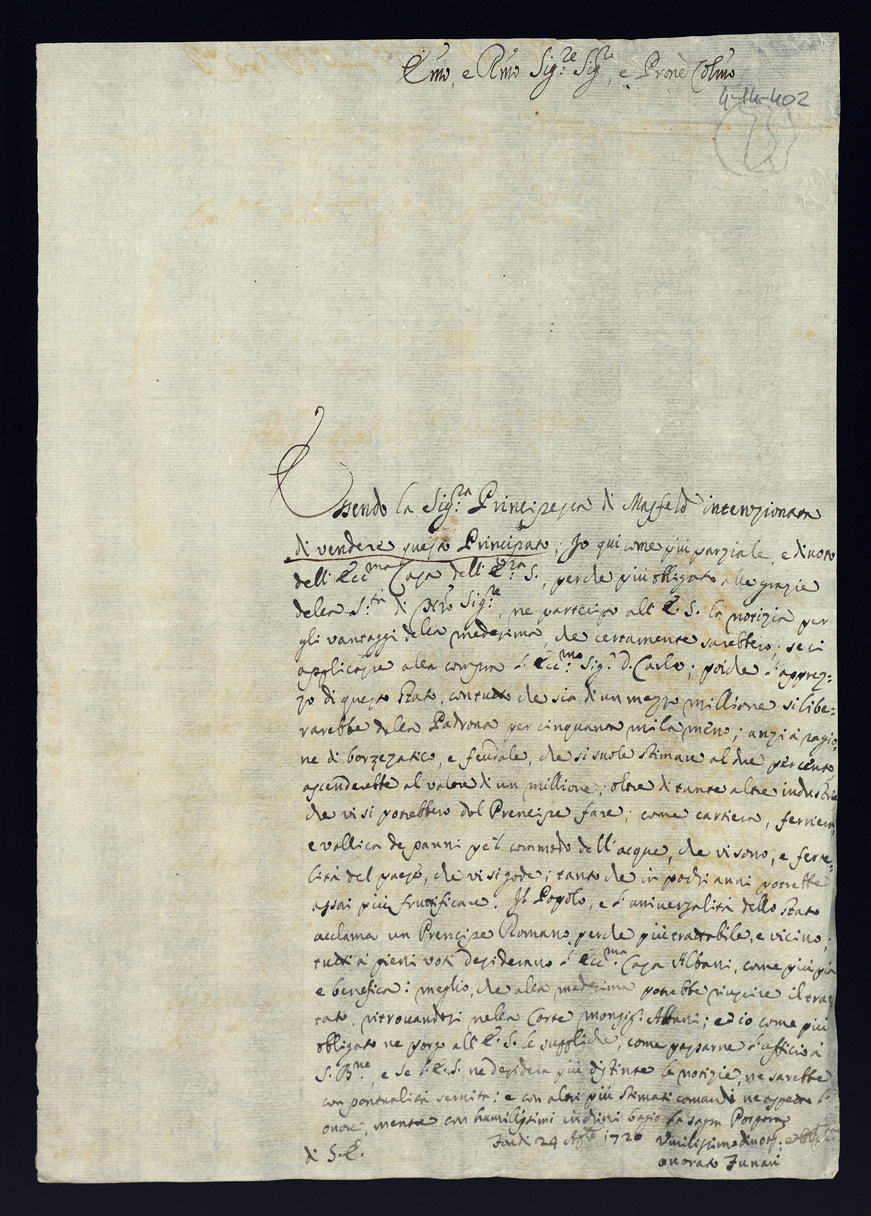 Emo, e Rmo Sig.re Sig.re, e Prone Colmo
4-14-402
Essendo la Sig.ra Principessa di Masfeld intenzionata
di vendere questo Principato; Io qui come più parziale, e divoto
dell'Ecc.ma Casa dell'E.ra S., perche più obligato alle grazie
della S.tà di Nro Sig.re, ne partecipo all'E. S. la notizia per
gli vantaggi della medesima, che certamente sarebbero; se ci
applicasse alla compra l'Ecc.mo Sig.r D. Carlo; poiche l'apprez-
zo di questo Stato, contutto che sia di un mezzo millione si libe-
rarebbe dalla Padrona per cinquanta mila meno; anzi à ragio-
ne di borzezatico, e feudale, che si suole stimare al due per cento
ascenderebbe al valore di un millione; oltre di tante altre industrie
che vi si potrebbero dal Prencipe fare; come cartiera, ferriera,
e vallica de panni p el commodo dell'acque, che vi sono, e ferti-
lità del paese, che vi si gode; tanto che in pochi anni potrebbe
assai più fruttificare. Il Popolo, e l'univerzalità dello Stato
acclama un Prencipe Romano, perche più trattabile, e vicino;
tutti à pieni voti desiderano l'Ecc.ma Casa Albani, come più pia
e benefica: meglio, che alla medesima potrebbe riuscire il trat-
tato, ritrovandosi nella Corte monsig.r Albani; ed io come più
obligato ne porgo all'E. S. le suppliche, come passarne l'ufficio à
S. B.ne, e se l'E. S. ne desidera più distinte le notizie, ne sarebbe
con pontualità servita; e con altri più stimati comandi ne aspetto l'
onore, mentre con humilissimi inchini bacio la sagra Porpora
di S. E. Fondi 24 Ag.to 1726 Umilissimo divot.
Onorato Funari